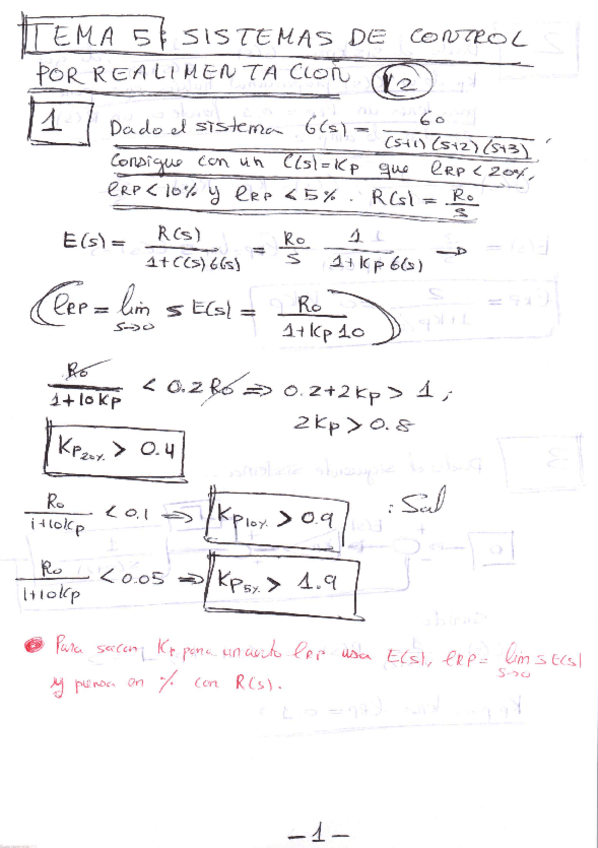 TEMA 5: SISTEMAS DE CONTROL
POR REALIMENTACION 12
1 Dado el sistema G(s) = 60 / (s+1)(s+2)(s+3).
Consigue con un C(s)=Kp que eRP < 20%,
eRP < 10% y eRP < 5%. R(s) = Ro / s
E(s) = R(s) / 1+C(s)G(s) = Ro / s 1 / 1+Kp G(s) →
eRP = lim s→0 s E(s) = Ro / 1+Kp 10
Ro / 1+10Kp < 0.2 Ro ⇒ 0.2+2Kp > 1;
2Kp > 0.8
Kp20% > 0.4
Ro / 1+10Kp < 0.1 ⇒ Kp10% > 0.9 : Sol
Ro / 1+10Kp < 0.05 ⇒ Kp5% > 1.9
Para sacar Kp para un cierto eRP usa E(s), eRP = lim s→0 s E(s)
y piensa en % con R(s).
-1-